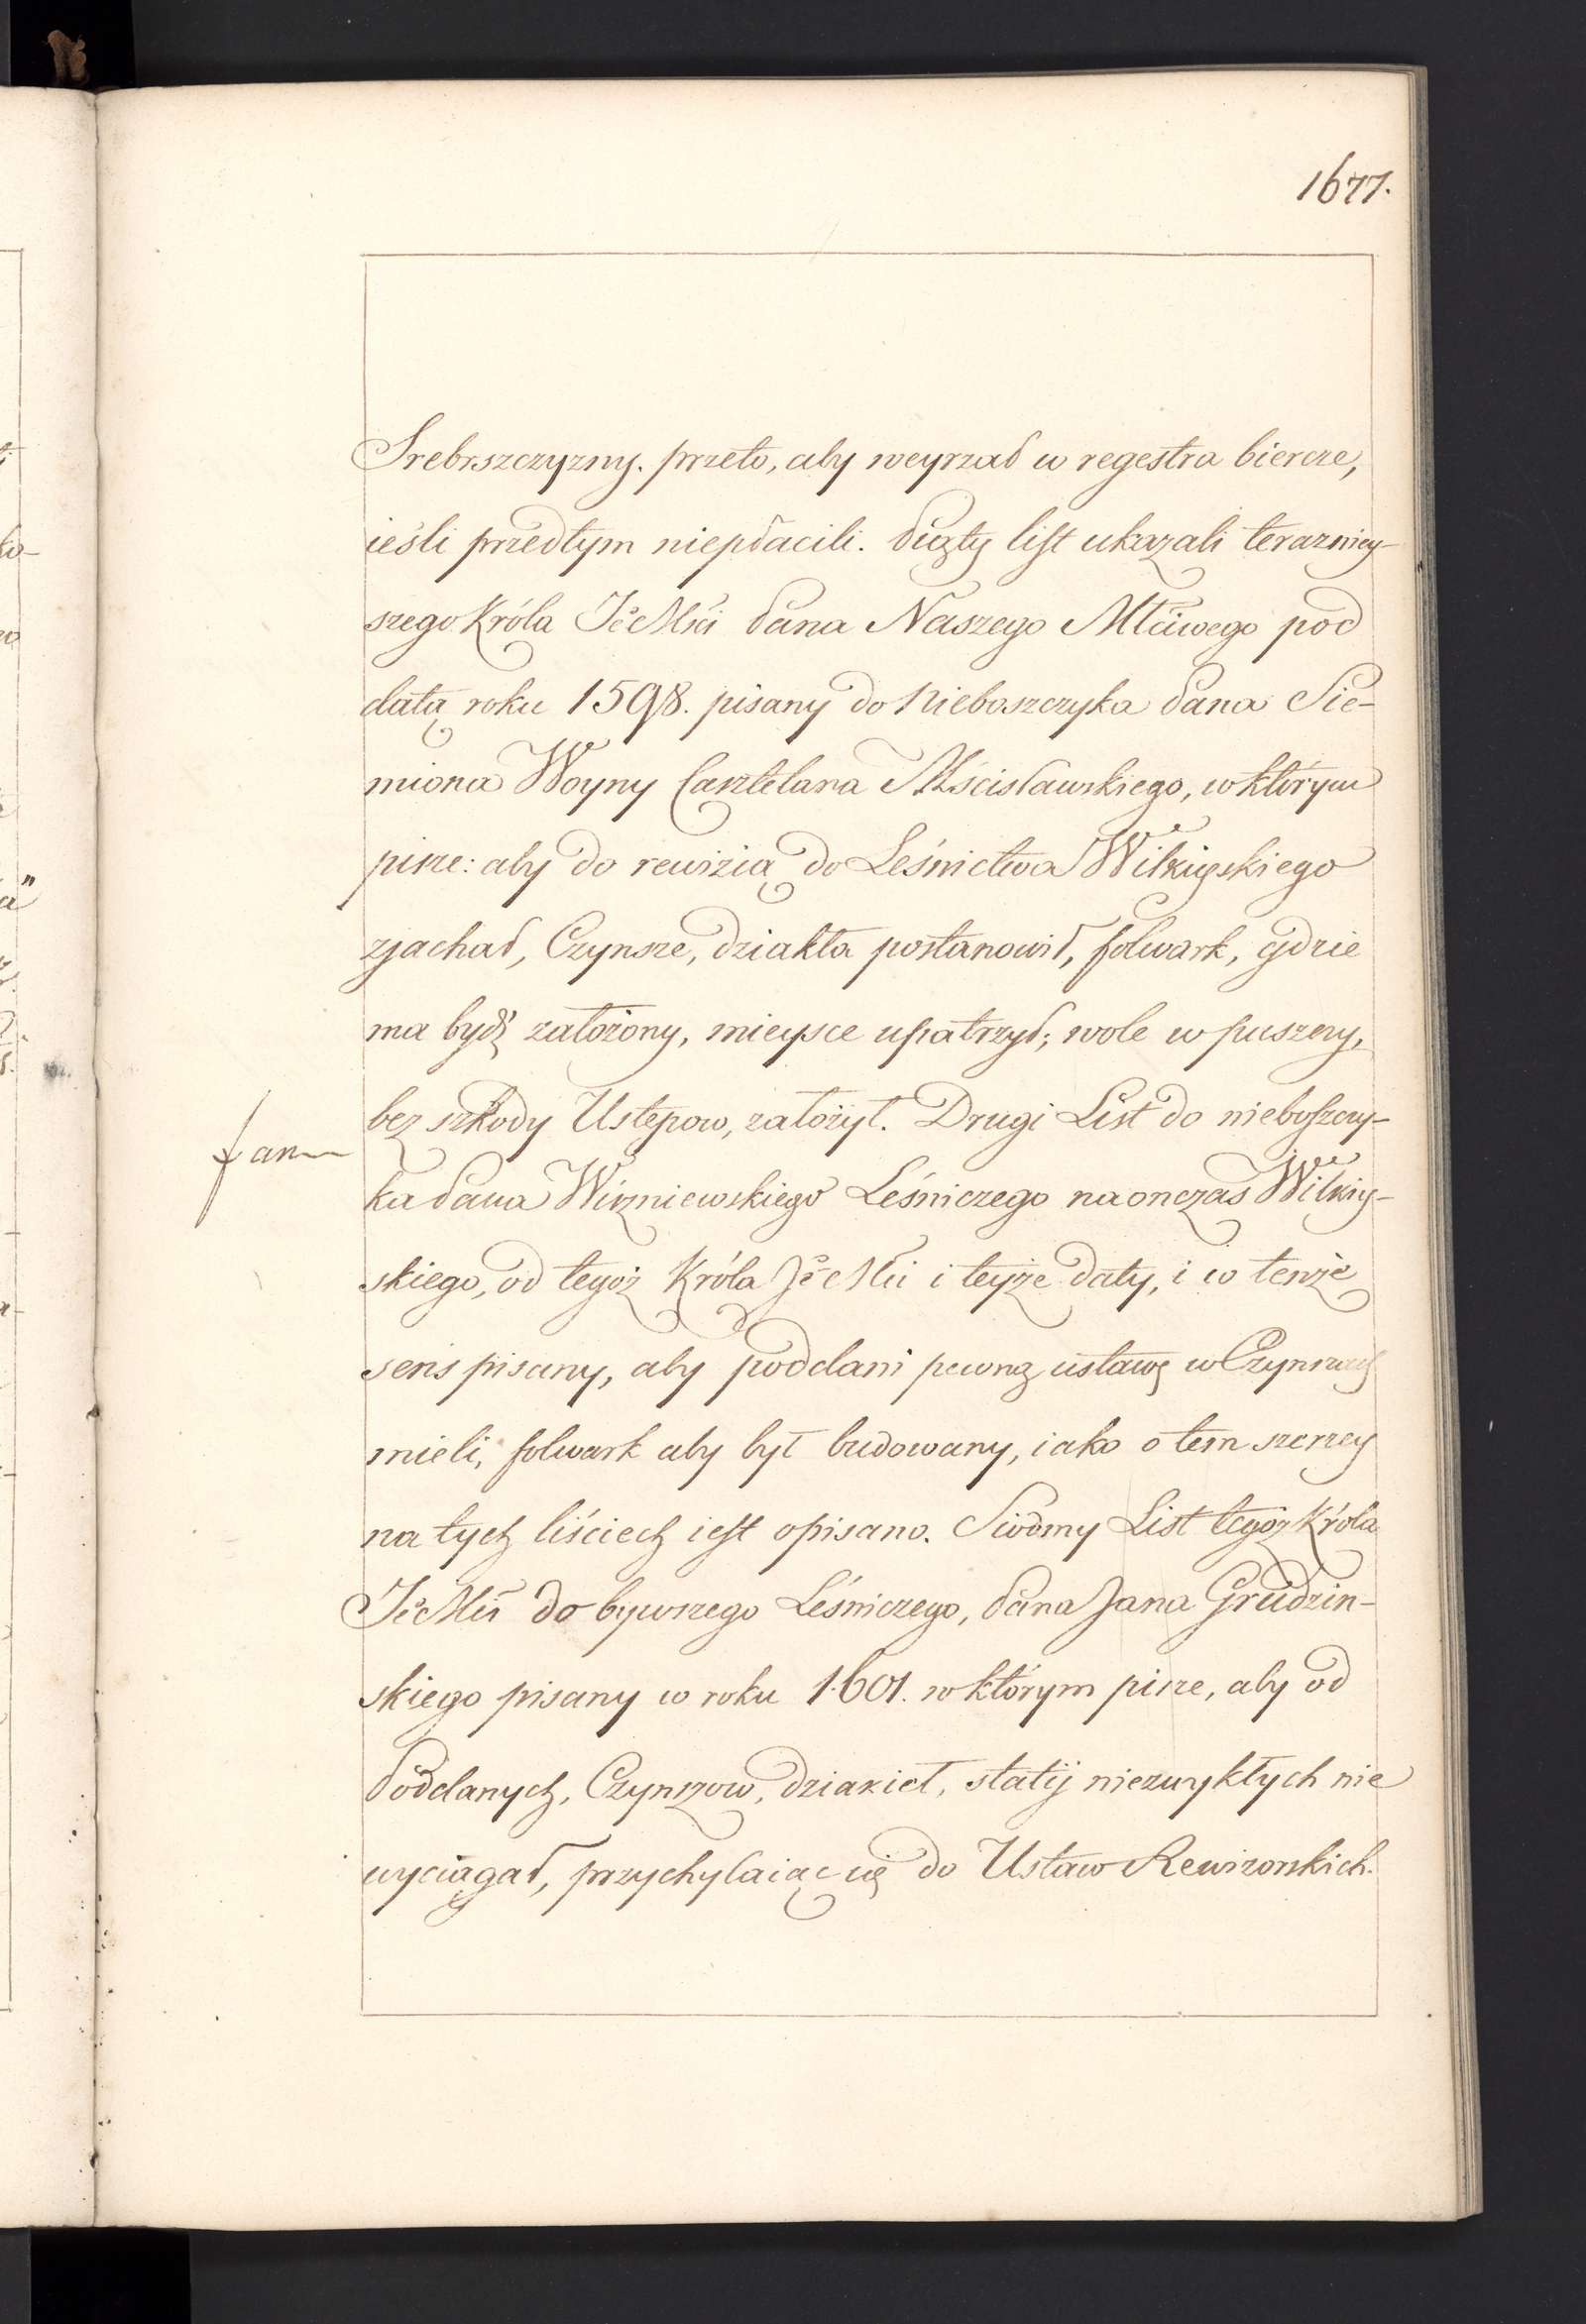 1677.
Srebrszczyzny. przeto, aby weyrzał w regestra biercze,
ieśli przedtym niepłacili. Piąty list ukazali terazniey-
szego Króla JeMści Pana Naszego Młciwego pod
datą roku 1598. pisany do Nieboszczyka Pana Sie-
miona Woyny Casztelana Mścisławskiego, w którym
pisze: aby do rewizią do Leśnictwa Wilkiyskiego
zjachał, Czynsze, dziakła postanowił, folwark, gdzie
ma bydź założony, mieysce upatrzył; wole w puszczy,
bez szkody Ustępow, założył. Drugi List do nieboszczy-
ka Pana Wizniewskiego Leśniczego naonczas Wilkiy-
skiego, od tegoż Króla JeMści i teyże daty, i w tenże
sens pisany, aby poddani pewną ustawę w Czynszach
mieli, folwark aby był budowany, iako o tem szerzey
na tych liściech iest opisano. Siódmy List tegoż Króla
JeMści do bywszego Leśniczego, Pana Jana Grudzin-
skiego pisany w roku 1601. w którym pisze, aby od
Poddanych, Czynszow, dziakieł, statij niezwykłych nie
wyciągał, przychylaiąc się do Ustaw Rewizorskich.